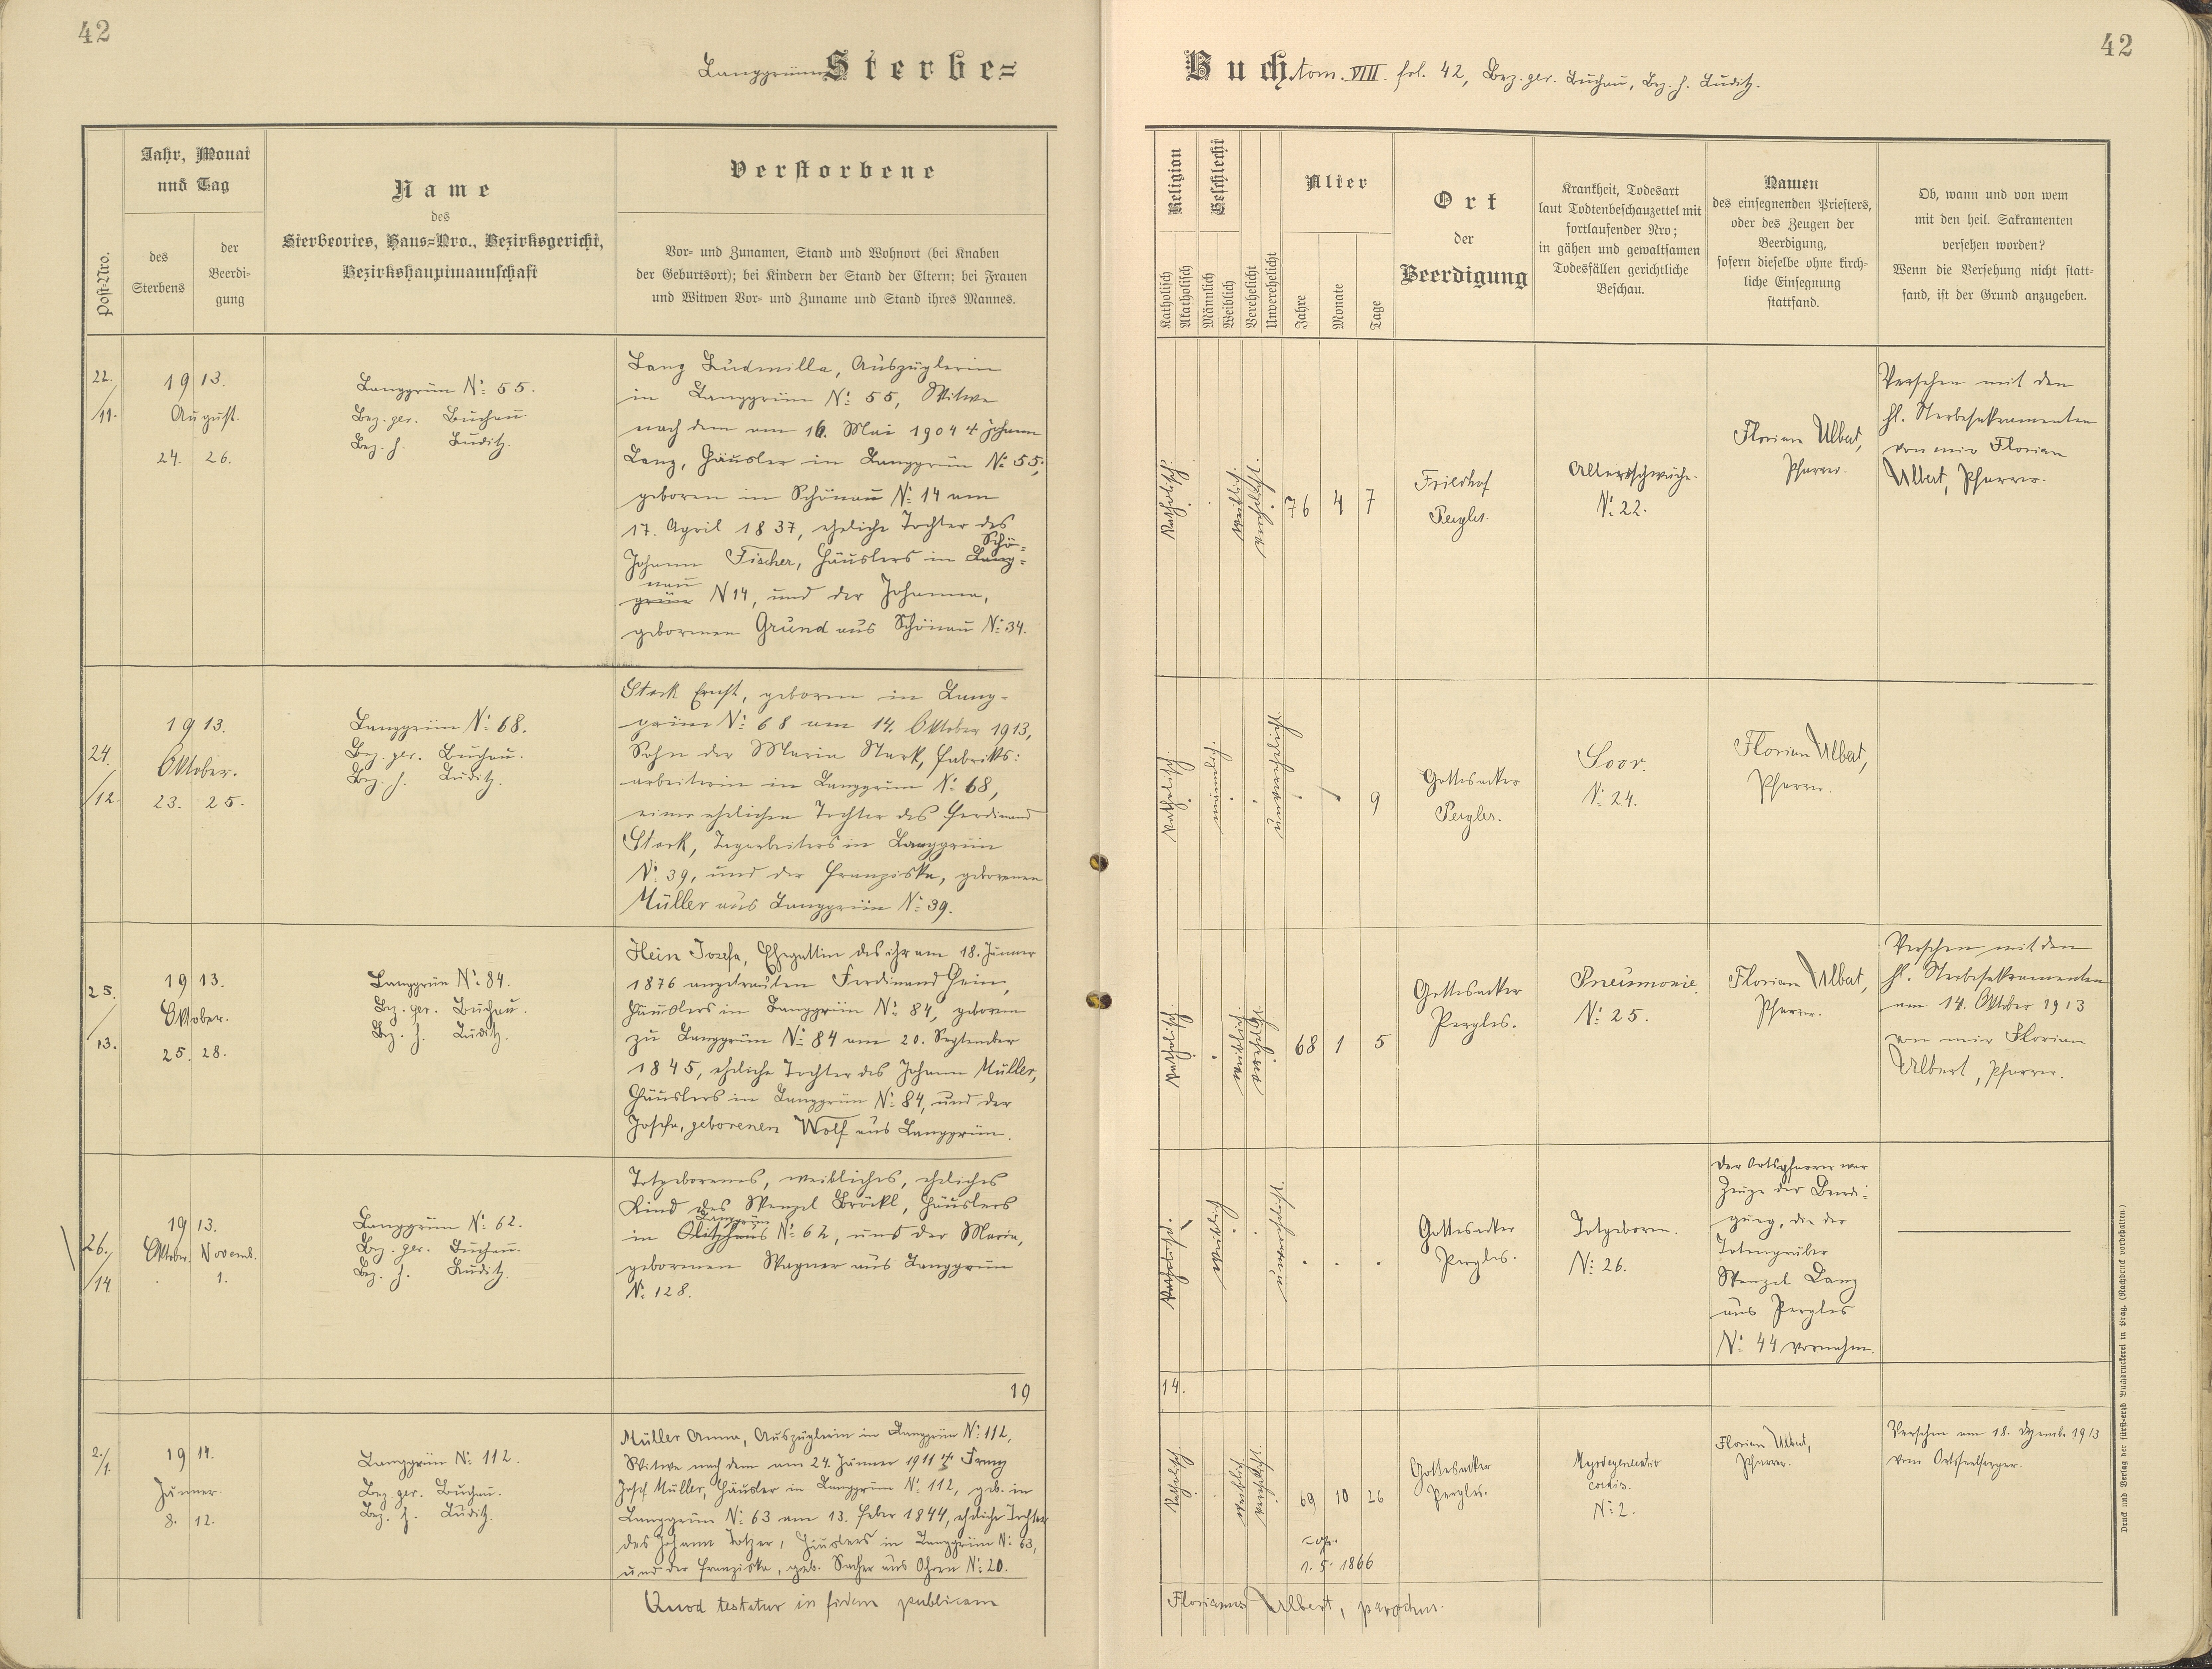 42
Langgrüner Sterbe=
Post-Nro.
Jahr, Monat
und Tag
des
Sterbens
der
Beerdi-
gung
Name
des
Sterbeortes, Haus=Nro., Bezirksgericht,
Bezirkshauptmannschaft
Verstorbene
Vor- und Zunamen, Stand und Wohnort (bei Knaben
der Geburtsort); bei Kindern der Stand der Eltern; bei Frauen
und Witwen Vor- und Zuname und Stand ihres Mannes.
22.
/11.
1913.
August.
24. 26.
Langgrün No: 55.
Bez. ger. Buchau.
Bez. h. Luditz.
Lanz Ludmilla, Auszüglerin
in Langgrün No: 55, Witwe
nach dem am 16. Mai 1904 † Johann
Lanz, Häusler in Langgrün No: 55,
geboren in Schönau No: 14 am
17. April 1837, eheliche Tochter des
Schö-
Johann Fischer, Häuslers in Lang-
nau
grün N 14, und der Johanna,
gebornen Grund aus Schönau No: 34.
24.
/12.
1913.
Oktober.
23. 25.
Langgrün No: 68.
Bez. ger. Buchau.
Bez. h. Luditz.
Stark Ernst, geboren in Lang-
grün No: 68 am 14. Oktober 1913,
Sohn der Maria Stark, Fabriks:
arbeiterin in Langgrün No: 68,
einer ehelichen Tochter des Ferdinand
Stark, Tagarbeiters in Langgrün
No: 39, und der Franziska, geborenen
Müller aus Langgrün No: 39.
25.
/13.
1913.
Oktober.
25. 28.
Langgrün No: 84.
Bez. ger. Buchau.
Bez. h. Luditz.
Hein Josefa, Ehegattin des ihr am 18. Jänner
1876 angetrauten Ferdinand Hein,
Häuslers in Langgrün No: 84, geboren
zu Langgrün No: 84 am 20. September
1845, eheliche Tochter des Johann Müller,
Häuslers in Langgrün No: 84, und der
Josefa, geborenen Wolf aus Langgrün.
26.
/14
1913.
Oktober. Novemb.
. 1.
Langgrün No: 62.
Bez. ger. Buchau.
Bez. h. Luditz.
Totgeborenes, weibliches, eheliches
Kind des Wenzel Bröckl, Häuslers
Langgrün
in No: 62, und der Maria,
gebornen Wagner aus Langgrün
No: 128.
19
2./
1.
1914.
Jänner.
8. 12.
Langgrün No: 112.
Bez. ger. Buchau.
Bez. h. Luditz.
Müller Anna, Auszüglerin in Langgrün No: 112,
Witwe nach dem am 24. Jänner 1911 † Franz
Josef Müller, Häusler in Langgrün No: 112, geb. in
Langgrün No: 63 am 13. Feber 1844, eheliche Tochter
des Johann Totzer, Häuslers in Langgrün No: 63,
und der Franziska, geb. Sacher aus Ohorn No: 20.
Quod testatur in fidem publicam
42
Buch, tom. VIII. fol. 42, Bez. ger. Buchau, Bez. h. Luditz.
Religion
Katholisch
Akatholisch
Geschlecht
Männlich
Weiblich
Verehelicht
Unverehelicht
Alter
Jahre
Monate
Tage
Ort
der
Beerdigung
Krankheit, Todesart
laut Todtenbeschauzettel mit
fortlaufender Nro;
in gähen und gewaltsamen
Todesfällen gerichtliche
Beschau.
Namen
des einsegnenden Priesters,
oder des Zeugen der
Beerdigung,
sofern dieselbe ohne kirch-
liche Einsegnung
stattfand.
Ob, wann und von wem
mit den heil. Sakramenten
versehen worden?
Wenn die Versehung nicht statt-
fand, ist der Grund anzugeben.
Katholisch.
weiblich.
verehelicht.
76 4 7
Friedhof
Pergles.
Altersschwäche.
No: 22.
Florian Albert,
Pfarrer.
Versehen mit den
hl. Sterbesakramenten
von mir Florian
Albert, Pfarrer.
Katholisch.
männlich.
unverehelicht.
9
Gottesacker
Pergles.
Soor.
No: 24.
Florian Albert,
Pfarrer.
Katholisch.
weiblich.
verehelicht.
68 1 5
Gottesacker
Pergles.
Pneumonie.
No: 25.
Florian Albert,
Pfarrer.
Versehen mit den
hl. Sterbesakramenten
am 14. Oktober 1913
von mir Florian
Albert, Pfarrer.
Katholisch.
weiblich
unverehelicht.
Gottesacker
Pergles.
Totgeboren.
No: 26.
Der Ortspfarrer war
Zeuge der Beerdi-
gung, die der
Totengräber
Wenzel Lanz
aus Pergles
No: 44 vornahm.
14.
Katholisch
weiblich
verehelicht.
69 10 26
cop.
1. 5. 1866
Gottesacker
Pergles.
Myodegeneratio
cordis.
No: 2.
Florian Albert,
Pfarrer.
Versehen am 18. Dezemb. 1913
vom Ortsseelsorger.
Florianus Albert, parochus.
Druck und Verlag der fürst-erzb. Buchdruckerei in Prag. (Nachdruck vorbehalten.)